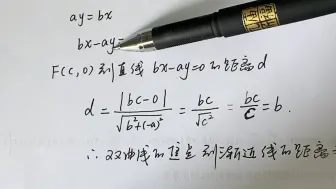 ay=bx
bx-ay=
F(c,0)到直线 bx-ay=0的距离d
d = |bc-0| / √(b²+(-a)²) = bc / √c² = bc / c = b.
∴双曲线的焦点到渐近线的距离